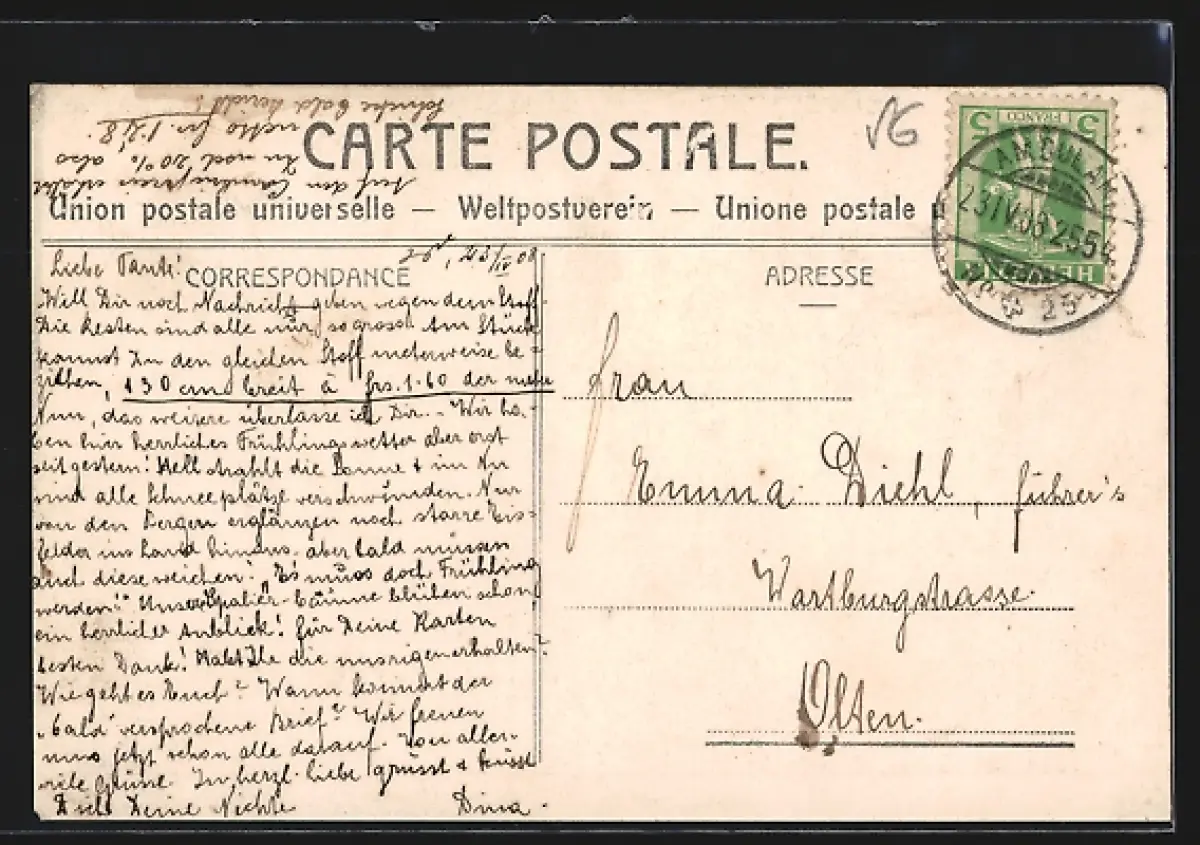 Auf den Catalogpreis erhälst
Du noch 20%, also
netto frs. 1.28.
Schicke bald Bericht!
VG
CARTE POSTALE.
Union postale universelle — Weltpostverein — Unione postale
5 5
FRANCO
HELVETIA
AMBULANT
23.IV.08.255
No 25
23/IV 08
CORRESPONDANCE
Liebe Tante!
Will Dir noch Nachricht geben wegen dem Stoff.
Die Resten sind alle nur so gross. Am Stück
kannst Du den gleichen Stoff meterweise be-
ziehen, 130 cm breit à frs. 1.60 der meter
Nun, das weitere überlasse ich Dir. - Wir ha-
ben hier herrliches Frühlingswetter aber erst
seit gestern! Hell strahlt die Sonne & im Nu
sind alle Schneeplätze verschwunden. Nur
von den Bergen erglänzen noch starre Eis-
felder ins Land hinaus, aber bald müssen
auch diese weichen! "Es muss doch Frühling
werden!" Unsere Spalier-bäume blühen schon,
ein herrlicher Anblick! Für Deine Karten
besten Dank! Habt Ihr die unsrigen erhalten?
Wie geht es Euch? Wann kommt der
"bald" versprochene Brief? Wir freuen
uns jetzt schon alle darauf. Von allen
viele Grüsse. In herzl. Liebe grüsst & küsst
Dich Deine Nichte Dina.
ADRESSE
Frau
Emma Diehl, führer's
Wartburgstrasse.
Olten.